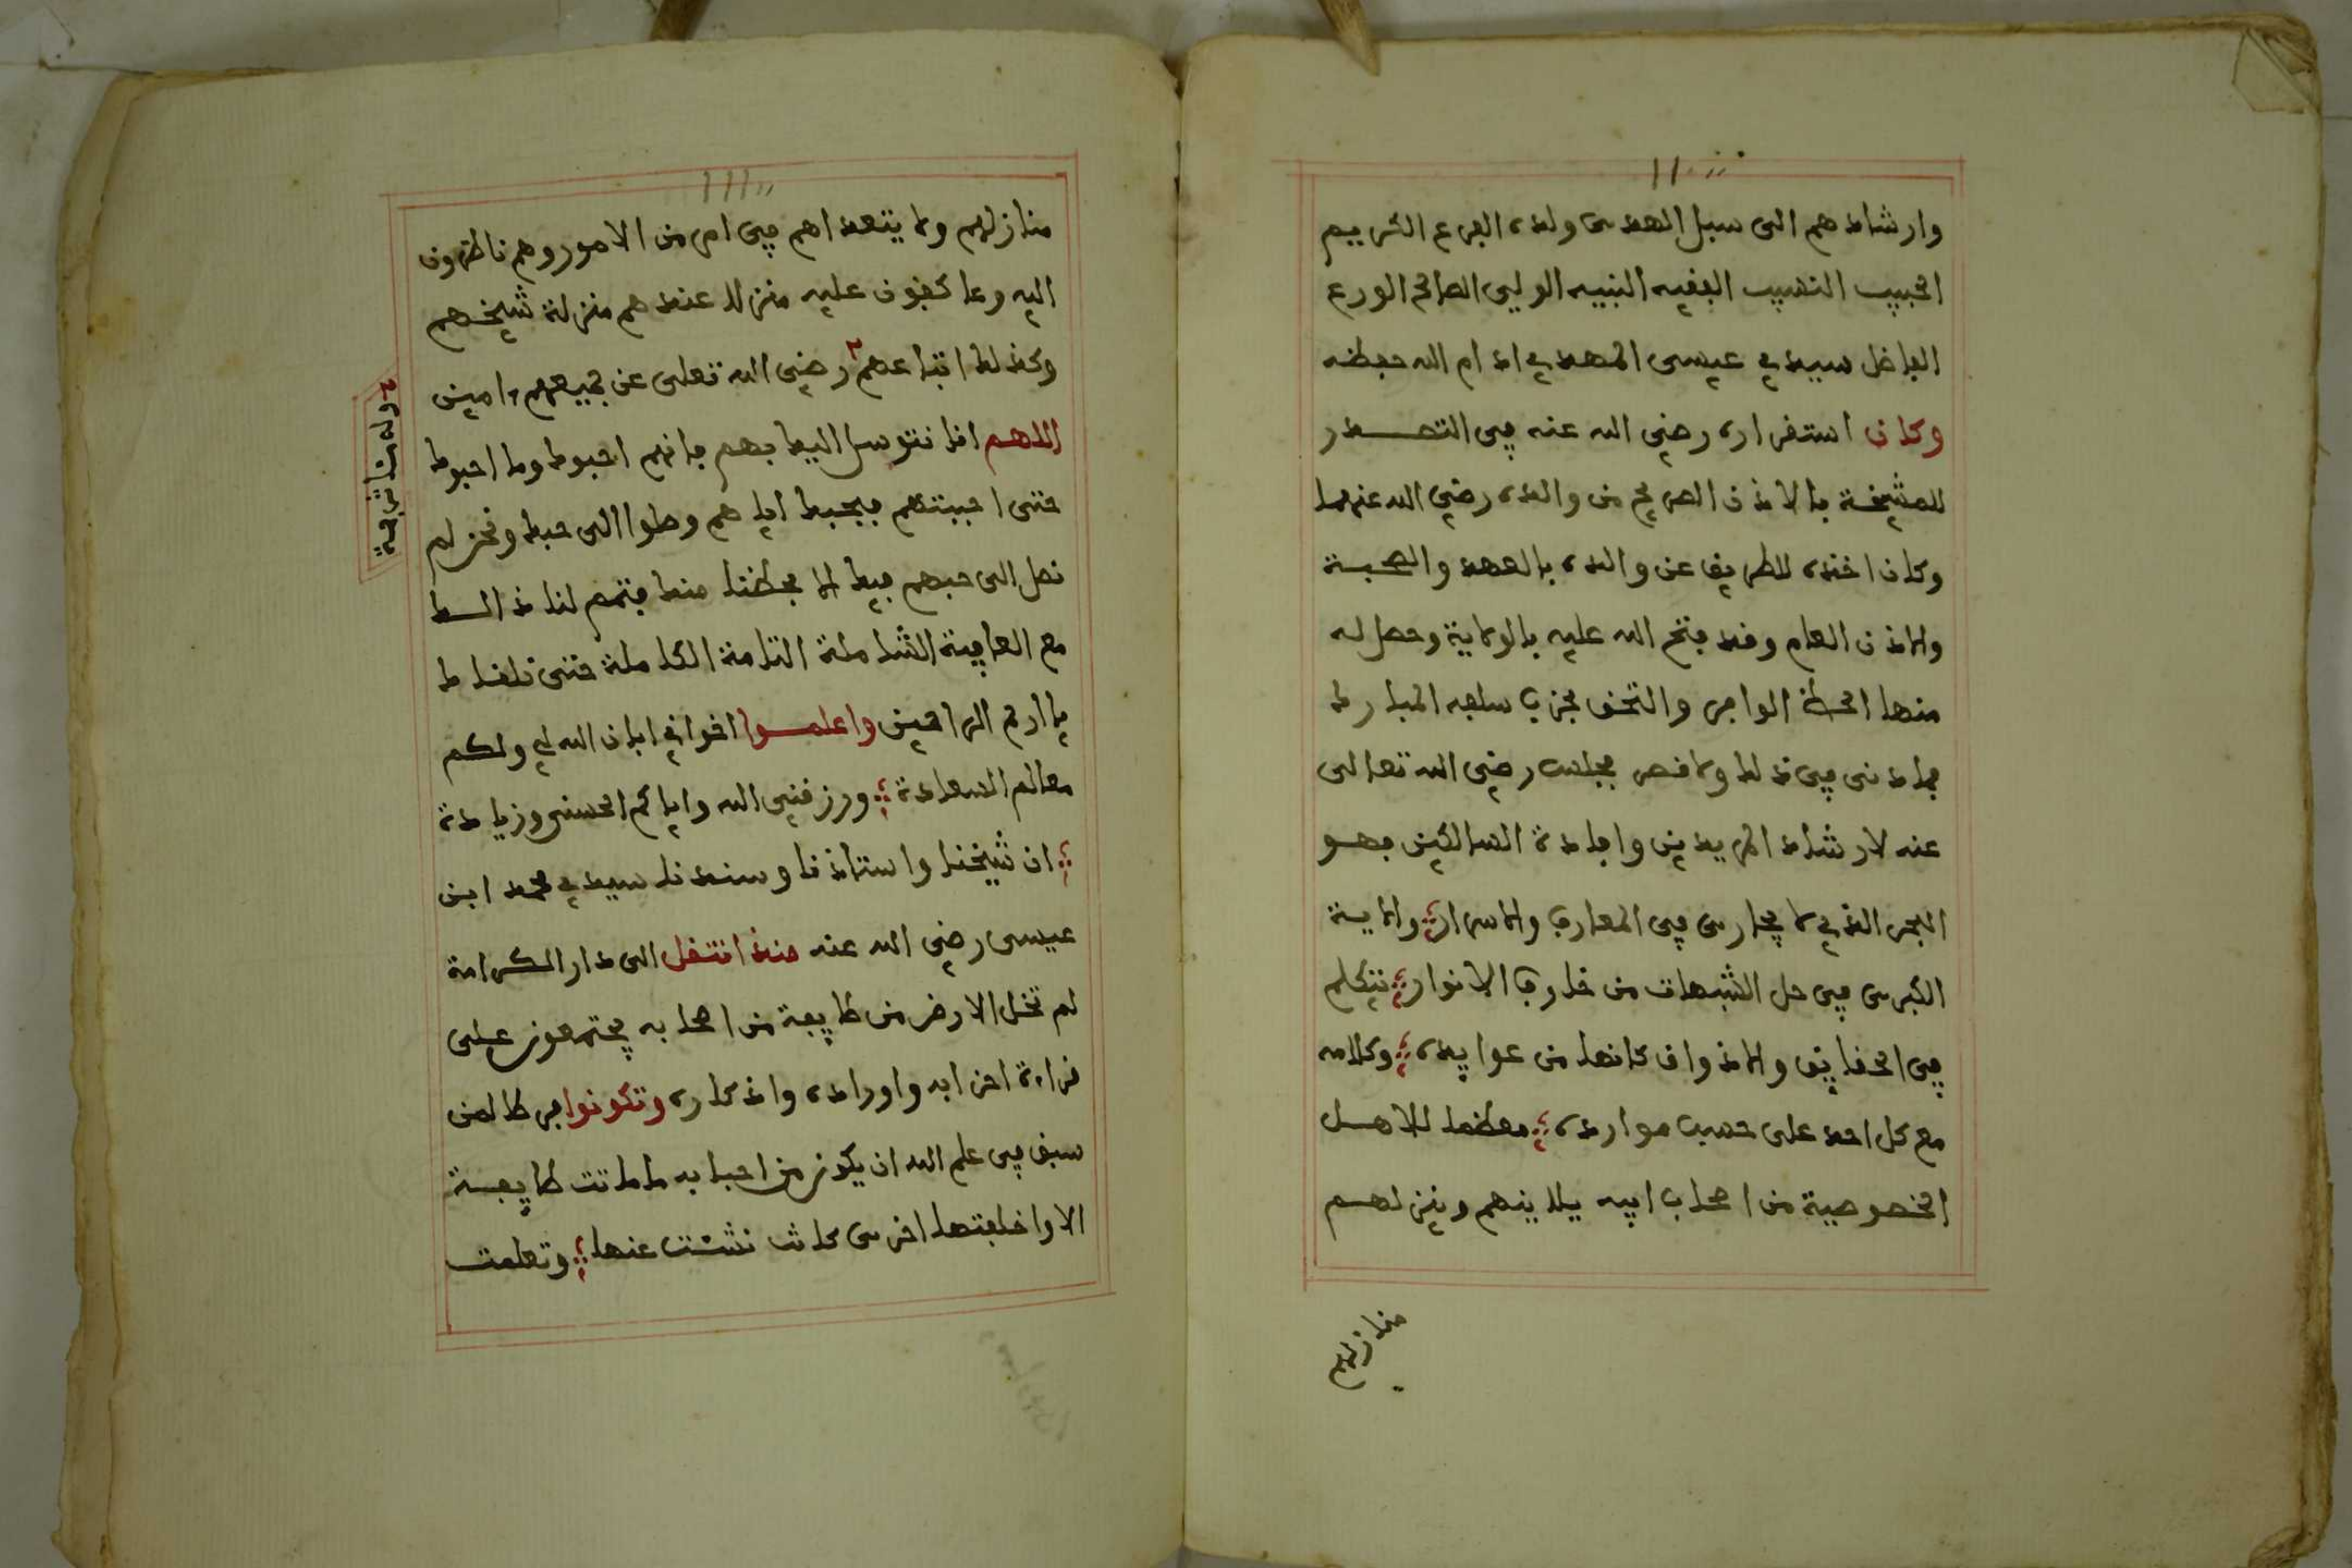 وارشادهم الى سبل الهدى ولده الفرع الكريم
الحبيب النسيب الفقيه النبيه الولي الصالح الورع
الفاضل سيدي عيسى المهدي ادام الله حفظه
وكان استقراره رضي الله عنه في التصدر
للمشيخة بالاذن الصريح من والده رضي الله عنهما
وكان اخذه للطريق عن والده بالعهد والصحبة
والاذن العام وقد فتح الله عليه بالولاية وحصل له
منها الحظ الوافر والتحق بحزب سلفه المبارك
فجاد نى في ذلك ولا قصر فجلس رضي الله تعالى
عنه لارشاد المريدين وافادة السالكين فهو
البحر الذي لا يجارى في المعارف والاسرار والاية
الكبرى في حل الشبهات من خارق الانوار يتكلم
في الحقايق والاذواق كانها من عوايده وكلامه
مع كل احد على حسب موارده معظما للاهل
الخصوصية من اصحاب ابيه يلاينهم وينزلهم
منازلهم
منازلهم ولا يتعداهم في امر من الامور وهم ناظرون
اليه وعاكفون عليه منزلا عندهم منزلة شيخهم
وكذلك اتباعهم رضي الله تعلى عن جميعهم ءامين
اللهم انا نتوسل اليك بهم فانهم احبوك وما احبوك
حتى احببتهم فبحبك اياهم وصلوا الى حبك ونحن لم
نصل الى حبهم فيك الا بحظنا منك فتمم لنا ذالك
مع العافية الشاملة التامة الكاملة حتى نلقاك
يا ارحم الراحمين واعلموا اخواني ابان الله لي ولكم
معالم السعادة ورزقني الله واياكم الحسنى وزيادة
ان شيخنا واستاذنا وسندنا سيدي محمد ابن
عيسى رضي الله عنه منذ انتقل الى دار الكرامة
لم تخل الارض من طايفة من اصحابه يجتمعون على
قراءة احزابه واوراده واذكاره وتكونوا من طالعن
سبق في علم الله ان يكون من احبابه ما ماتت طايفة
الا واخلفتها اخرى كانت نشئت عنها وتعلمت